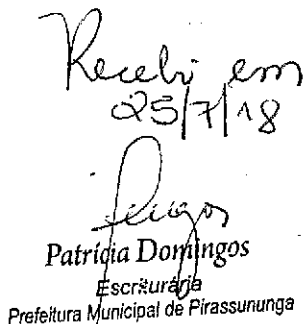 Recebi em
25/7/18
Patrícia Domingos
Escriturária
Prefeitura Municipal de Pirassununga